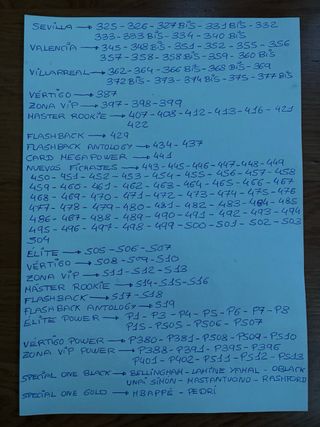 SEVILLA → 325-326-327 BIS-331 BIS-332
333-333 BIS-334-340 BIS
VALENCIA → 345-348 BIS-351-352-355-356
357-358-358 BIS-359-360 BIS
VILLARREAL → 362-364-366 BIS-368 BIS-369
372 BIS-373-374 BIS-375-377 BIS
VÉRTIGO → 387
ZONA VIP → 397-398-399
MASTER ROOKIE → 407-408-412-413-416-421
422
FLASHBACK → 429
FLASHBACK ANTOLOGY → 434-437
CARD MEGAPOWER → 441
NUEVOS FICHAJES → 443-445-446-447-448-449
450-451-452-453-454-455-456-457-458
459-460-461-462-463-464-465-466-467
468-469-470-471-472-473-474-475-476
477-478-479-480-481-482-483-484-485
486-487-488-489-490-491-492-493-494
495-496-497-498-499-500-501-502-503
504
ELITE → 505-506-507
VÉRTIGO → 508-509-510
ZONA VIP → 511-512-513
MÁSTER ROOKIE → 514-515-516
FLASHBACK → 517-518
FLASHBACK ANTOLOGY → 519
ELITE POWER → P1-P3-P4-P5-P6-P7-P8
P15-P505-P506-P507
VÉRTIGO POWER → P380-P381-P508-P509-P510
ZONA VIP POWER → P388-P391-P395-P396
P401-P402-P511-P512-P513
SPECIAL ONE BLACK → BELLINGHAM-LAMINE YAMAL-OBLACK
UNAI SIMON-MASTANTUONO-RASHFORD
SPECIAL ONE GOLD → MBAPPÉ-PEDRI